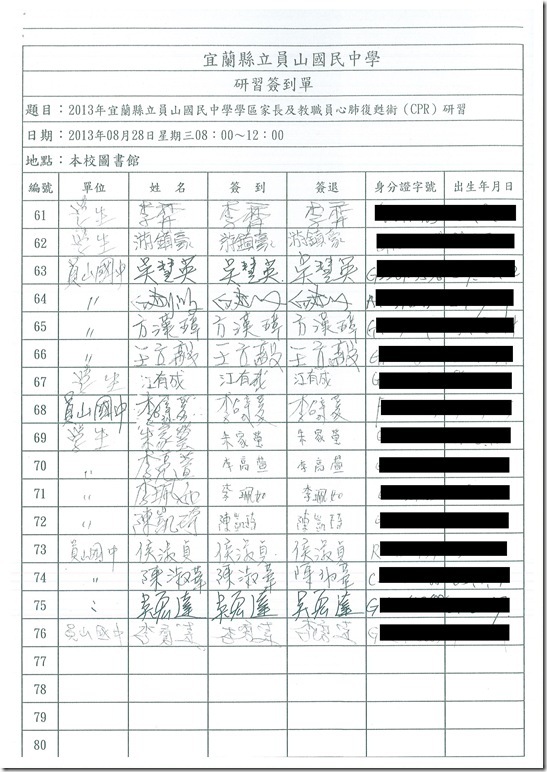 宜蘭縣立員山國民中學
研習簽到單
題目：2013年宜蘭縣立員山國民中學學區家長及教職員心肺復甦術（CPR）研習
日期：2013年08月28日星期三08：00～12：00
地點：本校圖書館
編號 單位 姓 名 簽 到 簽退 身分證字號 出生年月日
61 學生 李 李 李
62 學生 游鎮豪 游鎮豪 游鎮豪
63 員山國中 吳慧英 吳慧英 吳慧英 G
64 〃
65 〃 方漢瑋 方漢瑋 方漢瑋 G
66 〃 王立毅 王立毅 王立毅 G
67 學生 江有成 江有成 江有成 G
68 員山國中 李 李 李
69 學生 朱家萱 朱家萱 朱家萱
70 〃 李高萱 李高萱 李高萱
71 〃 李珮如 李珮如 李珮如
72 〃 陳凱琦 陳凱琦 陳凱琦
73 員山國中 侯淑貞 侯淑貞 侯淑貞
74 〃 陳淑華 陳淑華 陳淑華 C
75 〃 吳宏達 吳宏達 吳宏達 G
76 員山國中 李 李 李 G
77
78
79
80